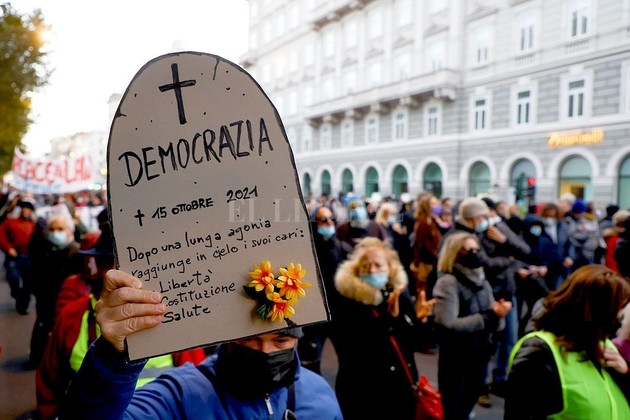 DEMOCRAZIA
✝ 15 OTTOBRE 2021
Dopo una lunga agonia
raggiunge in cielo i suoi cari:
- Libertà
- Costituzione
- Salute